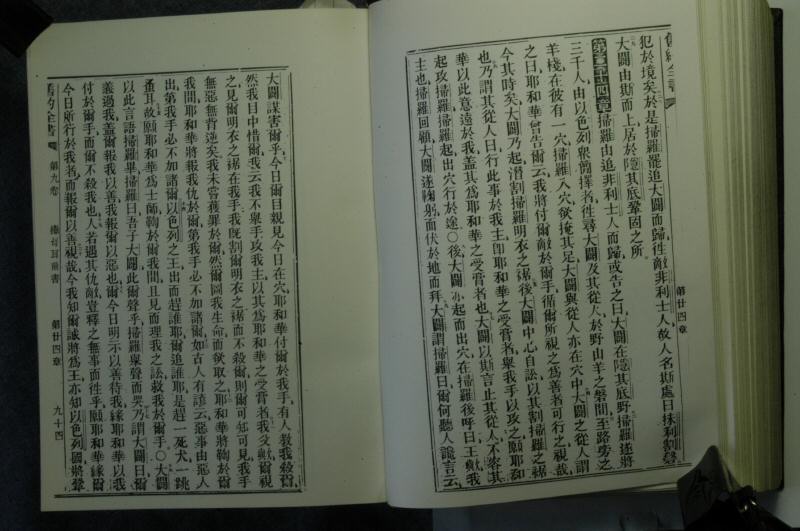 舊約全書
第廿四章
犯於境矣於是掃羅罷追大闢而歸徃敵非利士人故人名斯處曰抹利割磐
大闢由斯而上居於隱其底鞏固之所
第二十四章掃羅由追非利士人而歸或告之曰大闢在隱其底野掃羅遂將
三千人由以色列衆簡擇者徃尋大闢及其從人於野山羊之磐間至路旁之
羊棧在彼有一穴掃羅入穴欲掩其足大闢與從人亦在穴中大闢之從人謂
之曰耶和華曾告爾云我將付爾敵於爾手循爾所視之爲善者可行之視哉
今其時矣大闢乃起潛割掃羅明衣之裾後大闢中心自訟以其割掃羅之裾
也乃謂其從人曰行此事於我主卽耶和華之受膏者舉我手以攻之願耶和
華以此意遠於我盖其爲耶和華之受膏者也大闢以斯言止其從人不容其
起攻掃羅掃羅起出穴行於途○後大闢亦起而出穴在掃羅後呼曰王歟我
主也掃羅回顧大闢遂鞠躬而伏於地而拜大闢謂掃羅曰爾何聽人讒言云
大闢謀害爾乎今日爾目親見今日在穴耶和華付爾於我手有人敎我殺爾
然我目中惜爾我云我不舉手攻我主以其爲耶和華之受膏者我父歟爾視
之見爾明衣之裾在我手我旣割爾明衣之裾而不殺爾則爾可知可見我手
無惡無背逆矣我未嘗獲罪於爾然爾圖我生命而欲取之耶和華將鞫於爾
我間耶和華將報我仇於爾第我手必不加諸爾如古人有諺云惡事由惡人
出第我手必不加諸爾以色列之王出而趕誰耶爾追誰耶是趕一死犬一跳
蚤耳故願耶和華爲士師鞫於爾我間且見而理我之訟救我於爾手○大闢
以此言語掃羅畢掃羅曰吾子大闢此爾聲乎掃羅舉聲而哭乃謂大闢曰爾
義過我蓋爾報我以善我報爾以惡也爾今日明示以善待我緣耶和華以我
付於爾手而爾不殺我也人若遇其仇敵豈釋之無事而徃乎願耶和華緣爾
今日所行於我者而報爾以善視哉今我知爾誠將爲王亦知以色列國將聳
舊約全書
第九卷
撒母耳前書
第廿四章
九十四